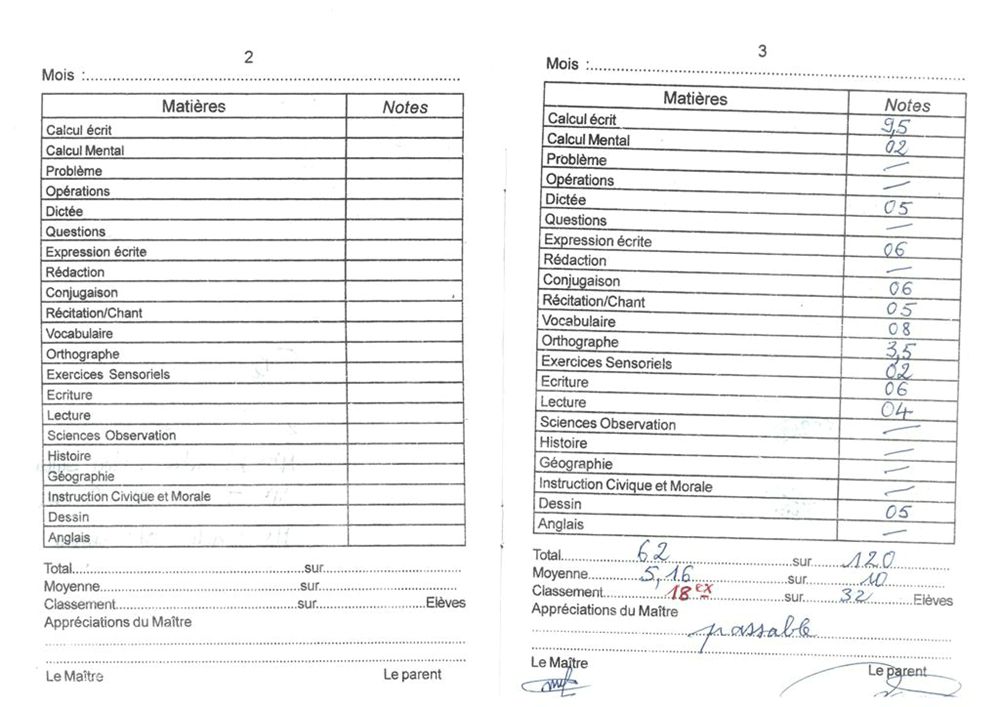 2
Mois :
Matières Notes
Calcul écrit
Calcul Mental
Problème
Opérations
Dictée
Questions
Expression écrite
Rédaction
Conjugaison
Récitation/Chant
Vocabulaire
Orthographe
Exercices Sensoriels
Ecriture
Lecture
Sciences Observation
Histoire
Géographie
Instruction Civique et Morale
Dessin
Anglais
Total sur
Moyenne sur
Classement sur Elèves
Appréciations du Maître
Le Maître Le parent
3
Mois :
Matières Notes
Calcul écrit 9,5
Calcul Mental 02
Problème —
Opérations —
Dictée 05
Questions —
Expression écrite 06
Rédaction —
Conjugaison 06
Récitation/Chant 05
Vocabulaire 08
Orthographe 3,5
Exercices Sensoriels 02
Ecriture 06
Lecture 04
Sciences Observation —
Histoire —
Géographie —
Instruction Civique et Morale —
Dessin 05
Anglais —
Total 62 sur 120
Moyenne 5,16 sur 10
Classement 18 ex sur 32 Elèves
Appréciations du Maître
passable
Le Maître Le parent